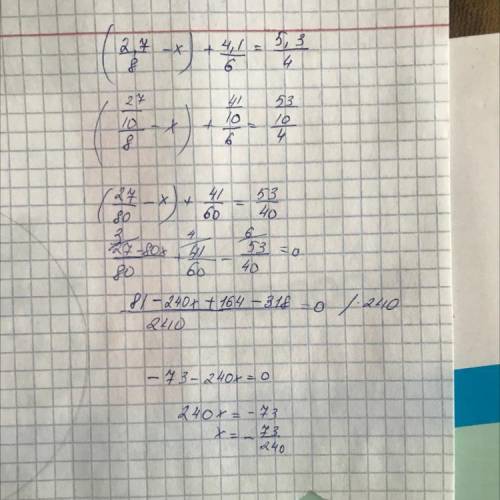 (2,7/8 - x) + 4,1/6 = 5,3/4
(27/10/8 - x) + 41/10/6 = 53/10/4
(27/80 - x) + 41/60 = 53/40
3/ 27-80x/80 + 4/ 41/60 - 6/ 53/40 = 0
81 - 240x + 164 - 318/240 = 0 /·240
-73 - 240x = 0
240x = -73
x = -73/240